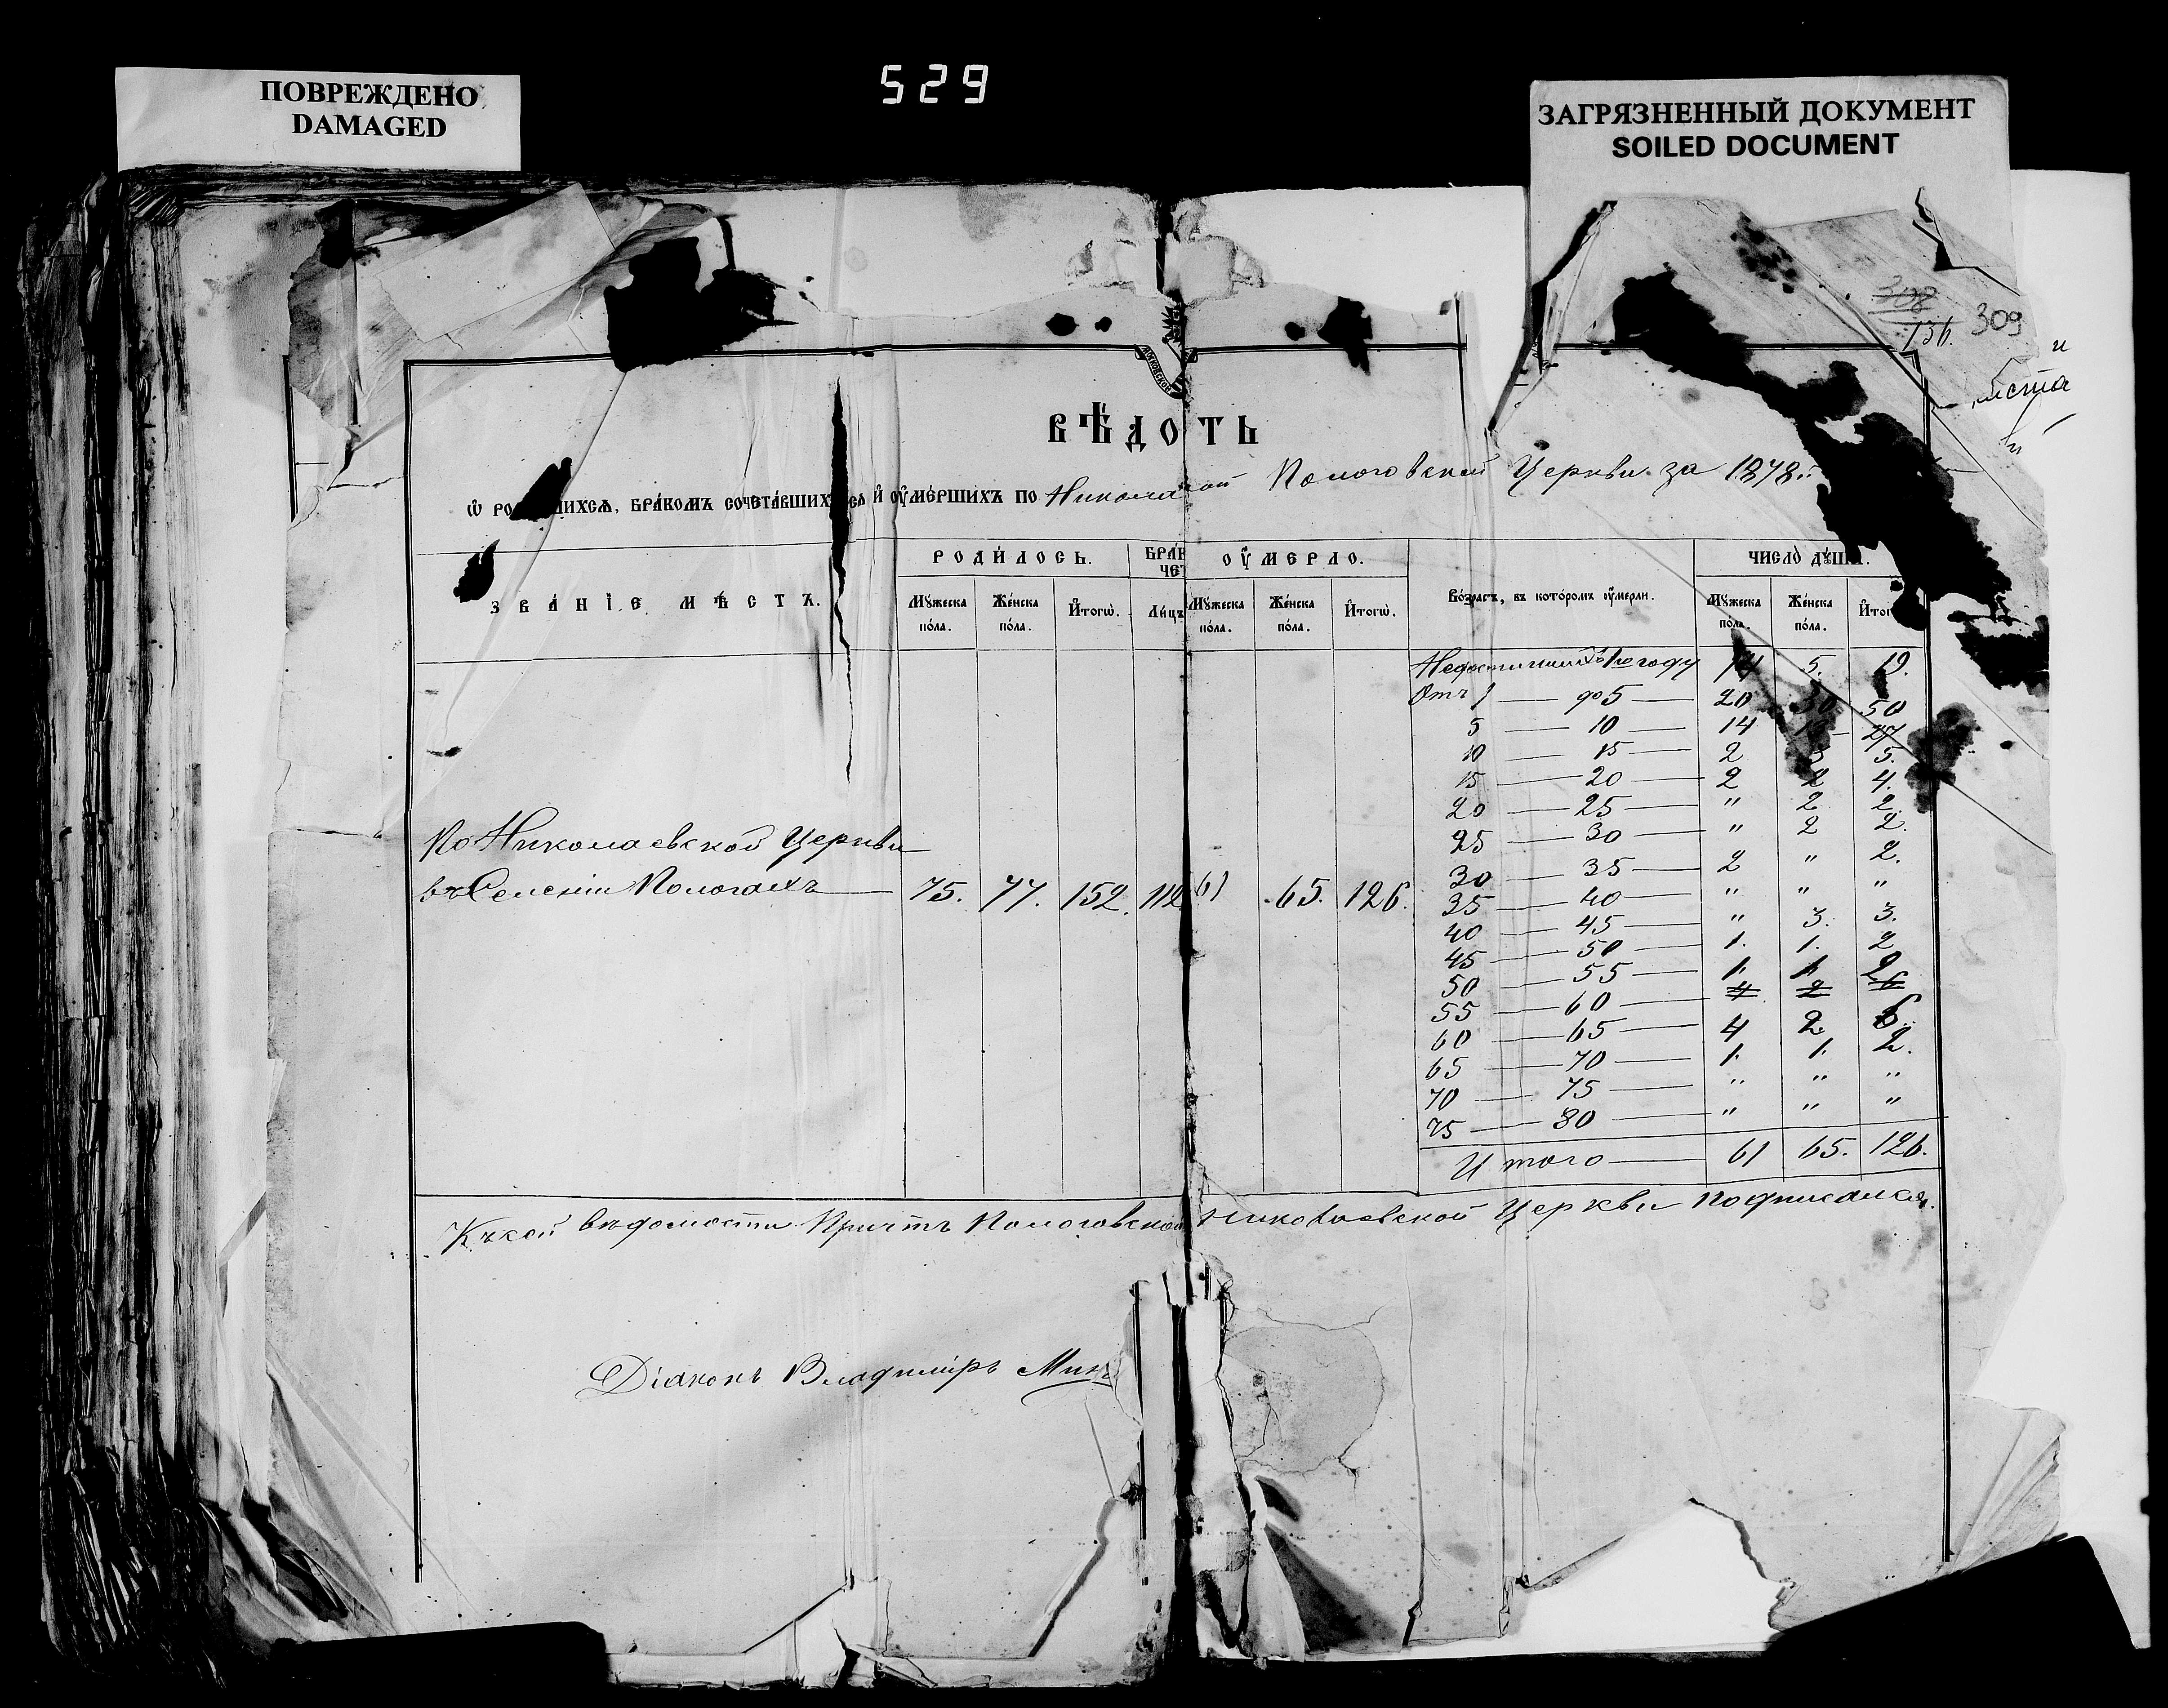 529
ПОВРЕЖДЕНО
DAMAGED
ЗАГРЯЗНЕННЫЙ ДОКУМЕНТ
SOILED DOCUMENT
308
136. 309
и
ѣста
МОСКОВСКОЙ
ВѢДО ТЬ
Ѡ РО ШИХСѦ, БРАКОМЪ СОЧЕТАВШИХСѦ И ОУМЕРШИХЪ ПО Никола кой Пологовской Церкви за 1878 г.
ЗВАНІЕ МѢСТЪ. РОДИЛОСЬ. БРАК ЧЕТ ОУМЕРЛО. Возрастъ, въ которомъ оумерли. ЧИСЛО ДУШЪ.
Мужеска пола. Женска пола. Итогѡ. Лицъ Мужеска пола. Женска пола. Итогѡ. Мужеска пола. Женска пола. Итог
Недостигшихъ 1го году 14 5. 19.
Отъ 1 — до 5 — 20 30 50
5 — 10 — 14 27
10 — 15 — 2 3 5.
15 — 20 — 2 2 4.
20 — 25 — " 2 2.
25 — 30 — " 2 2.
30 — 35 — 2 " 2.
35 — 40 — " " "
40 — 45 — " 3. 3.
45 — 50 — 1. 1. 2
50 — 55 — 1. 1. 2
55 — 60 — 4 2 6
60 — 65 — 4 2. 6.
65 — 70 — 1. 1. 2.
70 — 75 — " " "
75 — 80 — " " "
Итого — 61 65. 126.
По Николаевской Церкви
въ Селеніи Пологахъ — 75. 77. 152. 112 61 65. 126.
Къ сей вѣдомости Причтъ Пологовской Николаевской Церкви подписался.
Діаконъ Владиміръ